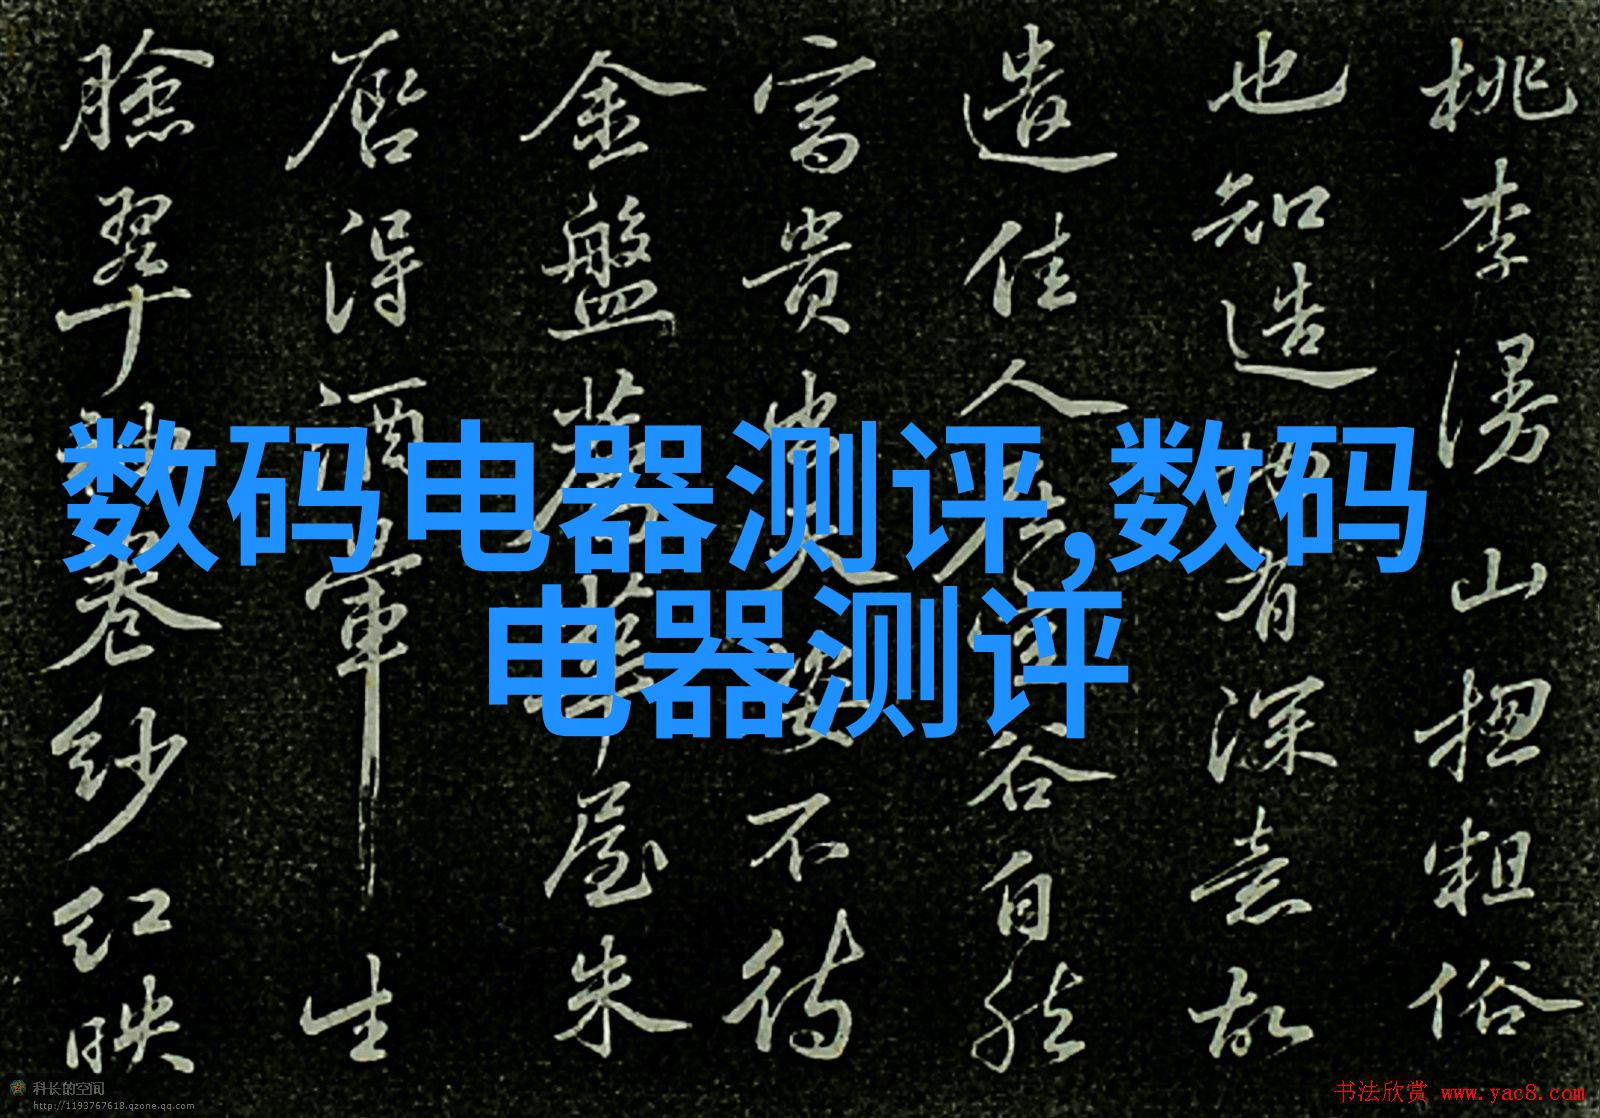 桃李漫山揔粗俗
也知造物有深意故
遣佳人在空谷自然
富貴出天姿不待
金盤薦華屋朱
唇得酒暈生
臉翠袖卷紗紅映
数码电器测评,数码
电器测评
科长的空间
http://1193767618.qzone.qq.com
书法欣赏 www.yac8.com